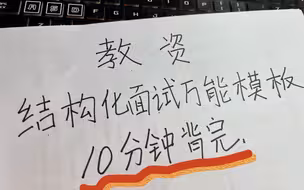 教资
结构化面试万能模板
10分钟背完.